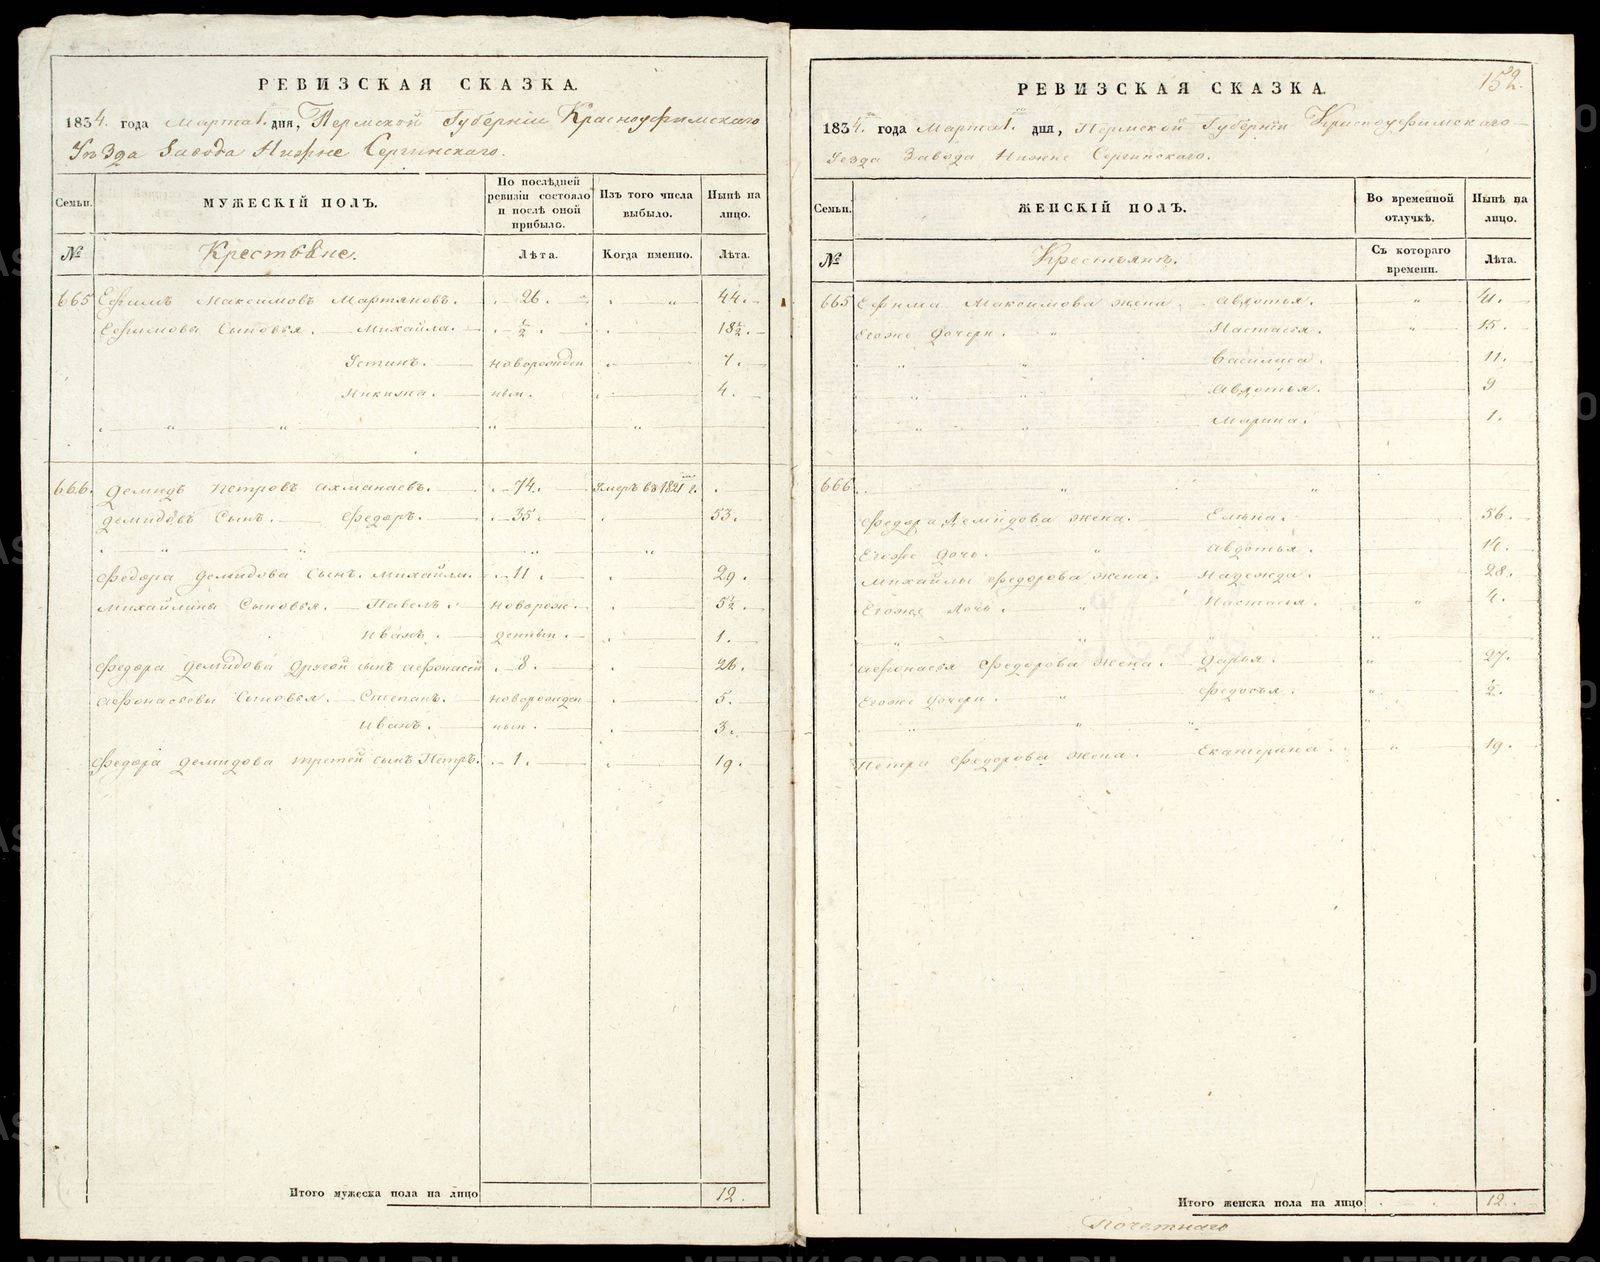 РЕВИЗСКАЯ СКАЗКА.
1834. года Марта 1. дня, Пермской Губернiи Красноуфимскаго
Уѣзда Завода Нижне Сергинскаго.
Семьи.
МУЖЕСКІЙ ПОЛЪ.
По послѣдней ревизіи состояло и послѣ оной прибыло.
Изъ того числа выбыло.
Нынѣ на лицо.
№
Крестьяне.
Лѣта.
Когда именно.
Лѣта.
665 Ефимъ Максимовъ Мартяновъ. 26. 44.
Ефимовы Сыновья. Михайла. ½. 18½.
Устинъ. новорожден 7.
Никита. ныи. 4.
666. Демидъ Петровъ Ахманаевъ. 74. Умеръ въ 1821 г.
Демидовъ Сынъ. Федоръ. 35. 53.
Федора Демидова Сынъ. Михайла. 11. 29.
Михайлины Сыновья. Павелъ. новорож. 5½.
Иванъ. денныи. 1.
Федора Демидова другой сынъ Афонасей 8. 26.
Афонасьевы Сыновья. Степанъ. новорожден 5.
Иванъ. ныи. 3.
Федора Демидова третей сынъ Петръ. 1. 19.
Итого мужеска пола на лицо 12.
152.
РЕВИЗСКАЯ СКАЗКА.
1834. года Марта 1. дня, Пермской Губернiи Красноуфимскаго
Уезда Завода Нижне Сергинскаго.
Семьи.
ЖЕНСКІЙ ПОЛЪ.
Во временной отлучкѣ.
Нынѣ на лицо.
№
Крестьянк.
Съ котораго времени.
Лѣта.
665 Ефима Максимова жена Авдотья. 41.
Егоже дочери. Настасья. 15.
Василиса. 11.
Авдотья. 9
Марина. 1.
666
Федора Демидова жена. Елена. 56.
Егоже дочь. Авдотья. 14.
Михайлы Федорова жена. Надежда. 28.
Егоже Дочь. Настасья. 4.
Афонасья Федорова жена. Дарья. 27.
Егоже дочери. Федосья. ½.
Петра Федорова жена. Екатерина. 19.
Итого женска пола на лицо 12.